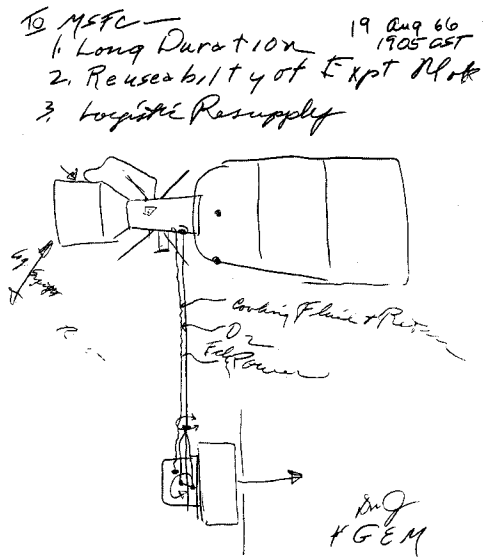 To MSFC —
19 Aug 66
1905 CST
1. Long Duration
2. Reuseability of Expt Mod
3. Logistic Resupply
Cooling Fluid & Return
O2
Power
GEM